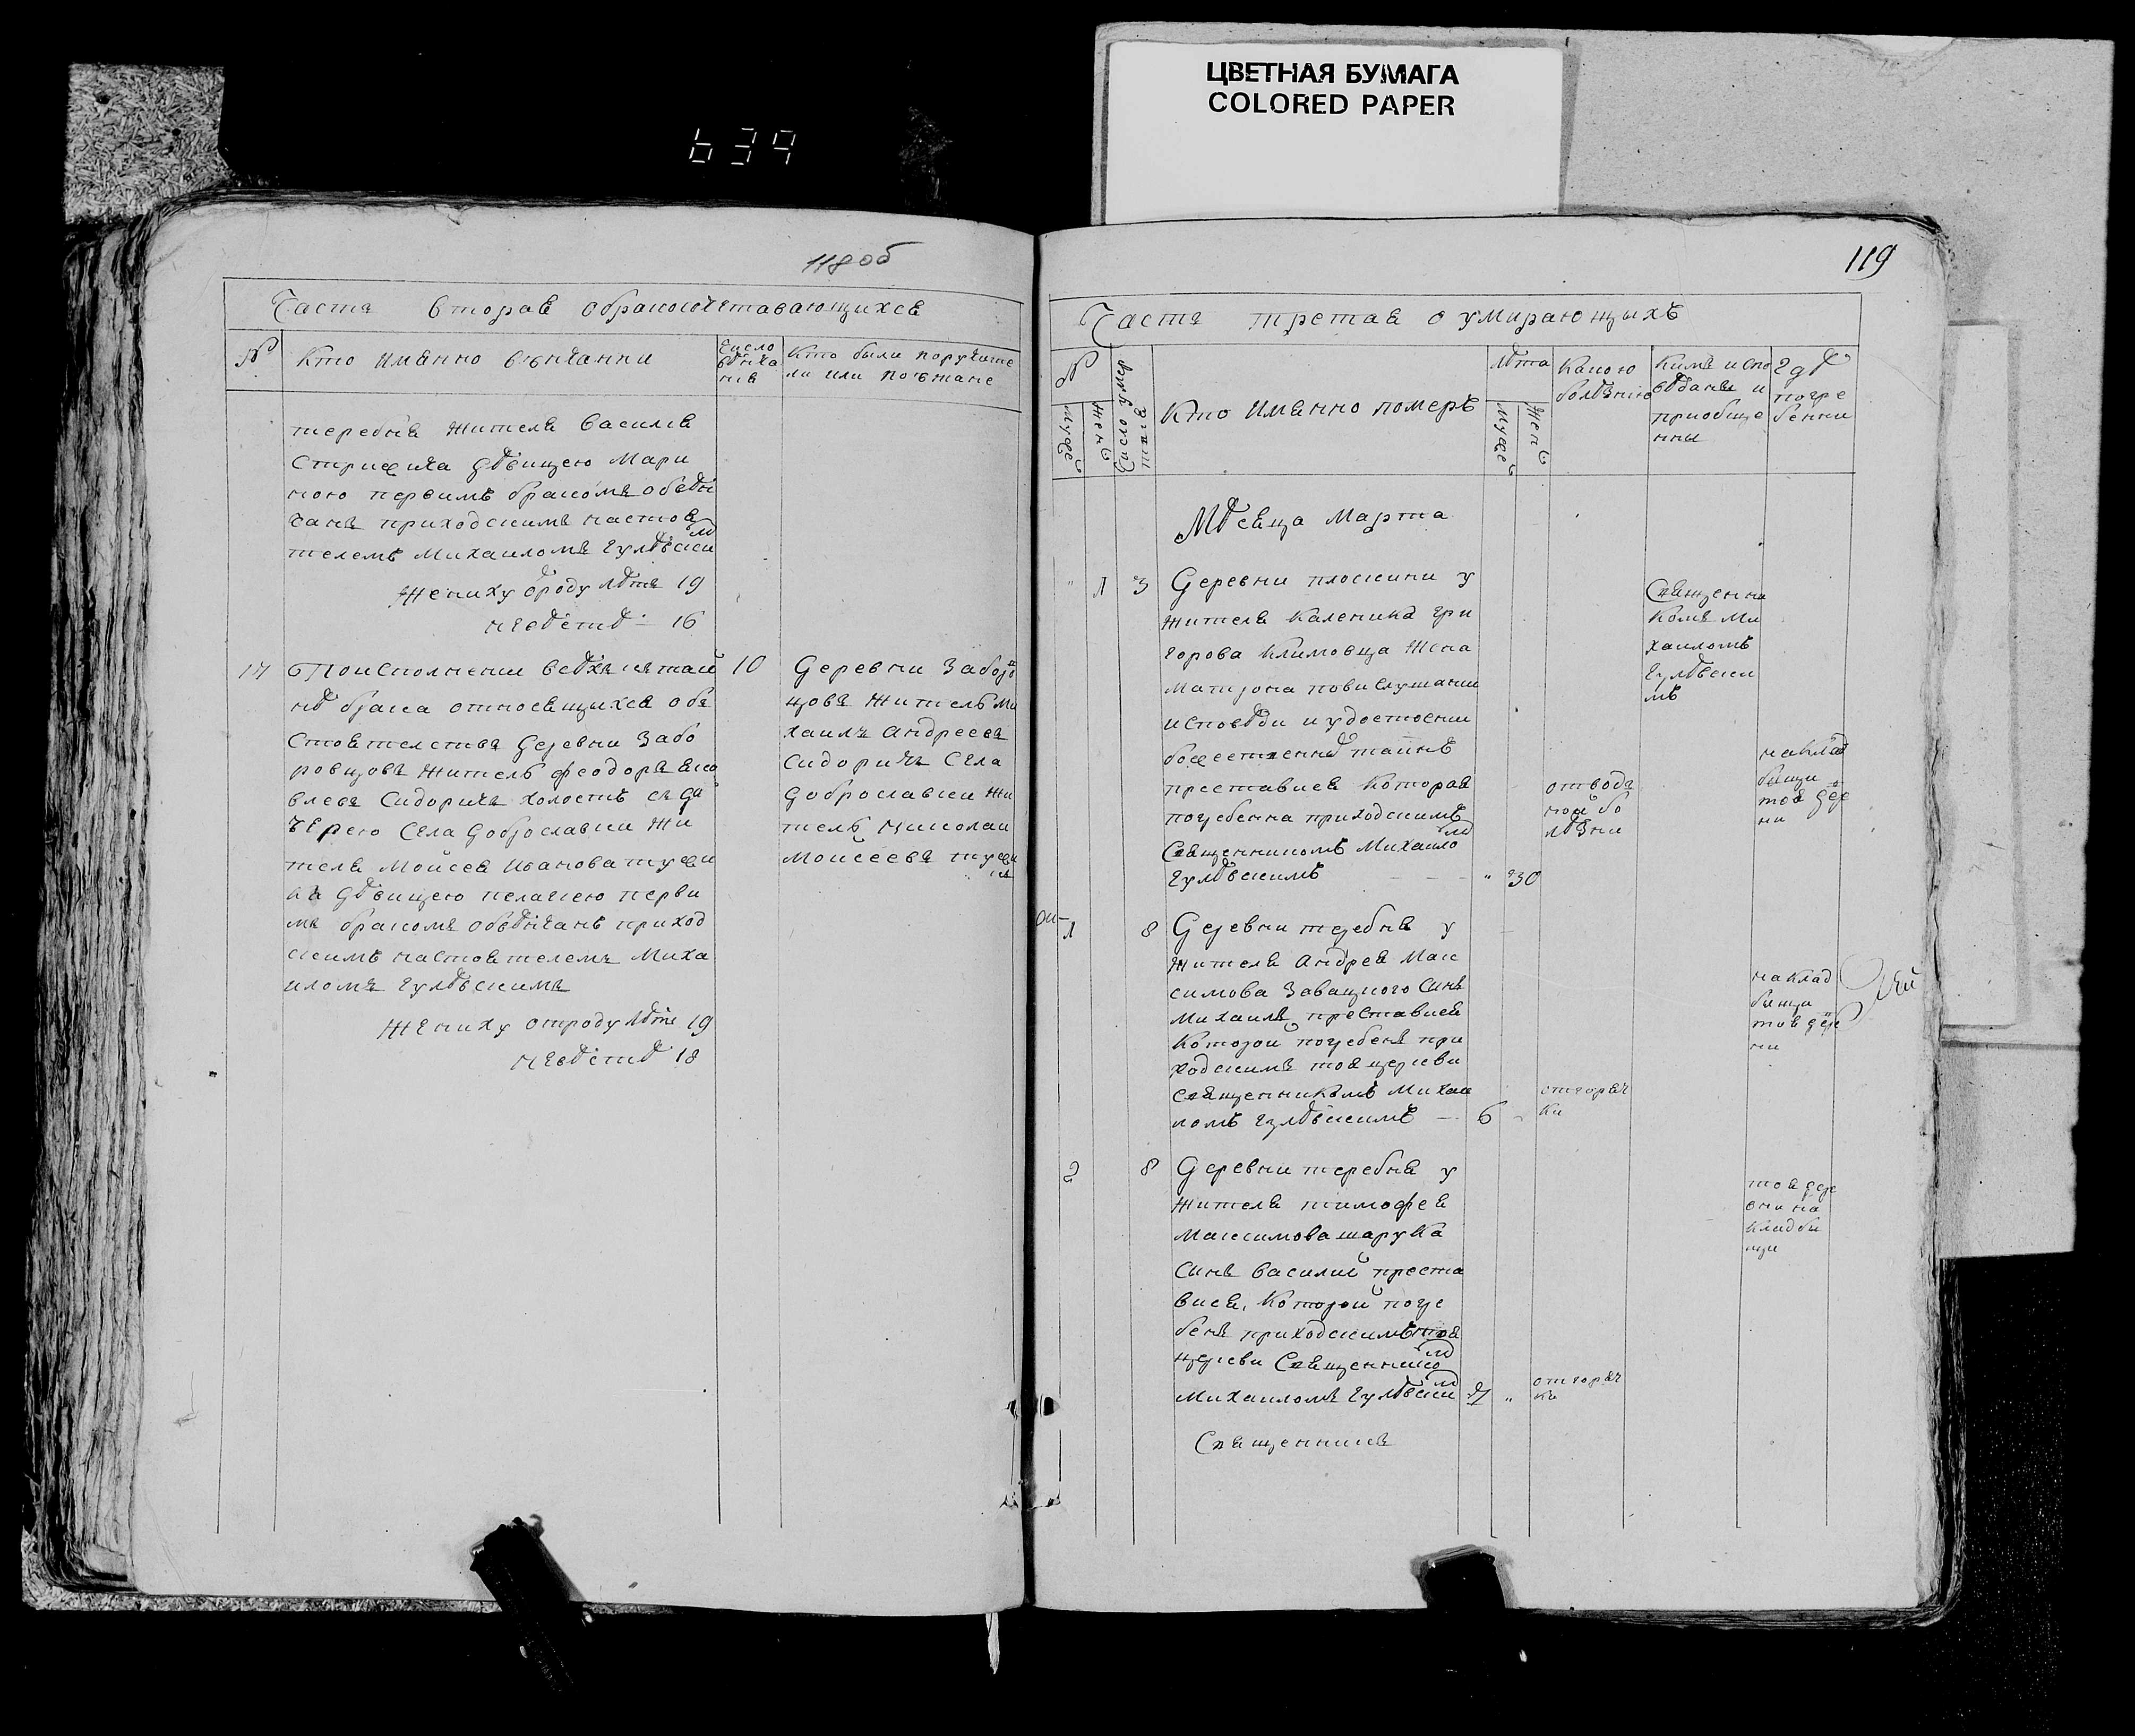 ЦВЕТНАЯ БУМАГА
COLORED PAPER
639
118 об
Часть вторая о бракосочетавающихся
№
Кто имянно венчанни
Число
венча
ния
Кто были поручите
ли или поезжане
теребня жителя Василия
дѣвицею Мари
ною первимъ бракомъ обвѣн
чанъ приходскимъ настоя
телемъ Михаиломъ Гулѣвски
мъ
Жениху отроду лѣтъ 19
невѣстѣ 16
14
По исполнении всѣхъ к тай
нѣ брака относящихся об
стоятелствъ деревни Забо
ровцовъ житель Феодоръ Яко
влевъ Сидоричъ холостъ съ до
черею села Доброславки жи
теля Моисея Иванова
дѣвицею Пелагиею перви
мъ бракомъ обвѣнчанъ приход
скимъ настоятелемъ Миха
иломъ Гулѣвскимъ
Жениху отроду лѣтъ 19
невѣстѣ 18
10
Деревни Заборо
цовъ житель Ми
хаилъ Андреевъ
Сидоричъ села
Доброславки жи
тель Николаи
Моисеевъ
119
Часть третая о умирающихъ
№
Муж
Жен
Число умер
ших
Кто имянно померъ
Лѣта
Муж
Жен
Какою
болѣзнию
Кимъ испо
вѣданы и
приобще
нны
Гдѣ
погре
бенни
Мѣсяца Марта
1 3
Деревни Плоскини у
жителя Каленика Гри
горова Климовца жена
Матрона по вислушании
исповѣди и удостоении
божественнѣ таинъ
преставися которая
погребенна приходскимъ
священникомъ Михаило
мъ
Гулѣвскимъ — " 30
от водя
ной бо
лѣзни
Священни
комъ Ми
хаиломъ
Гулѣвски
мъ
на клад
бищи
тоя дере
ни
1 8
Деревни теребня у
жителя Андрея Мак
симова Завацкого синъ
Михаилъ преставися
которои погребенъ при
ходскимъ тоя церкви
священникомъ Михаи
ломъ Гулѣвскимъ — 6
от горяч
ки
на клад
бищи
тоя дере
ни
2 8
Деревни теребня у
жителя Тимофея
Максимова Шарука
сынъ Василий преста
вися, которои погре
бенъ приходскимъ тоя
церкви священнико
мъ
Михаиломъ Гулѣвски
мъ
от горяч
ки
тоя дере
вни на
кладби
щи
Священникъ